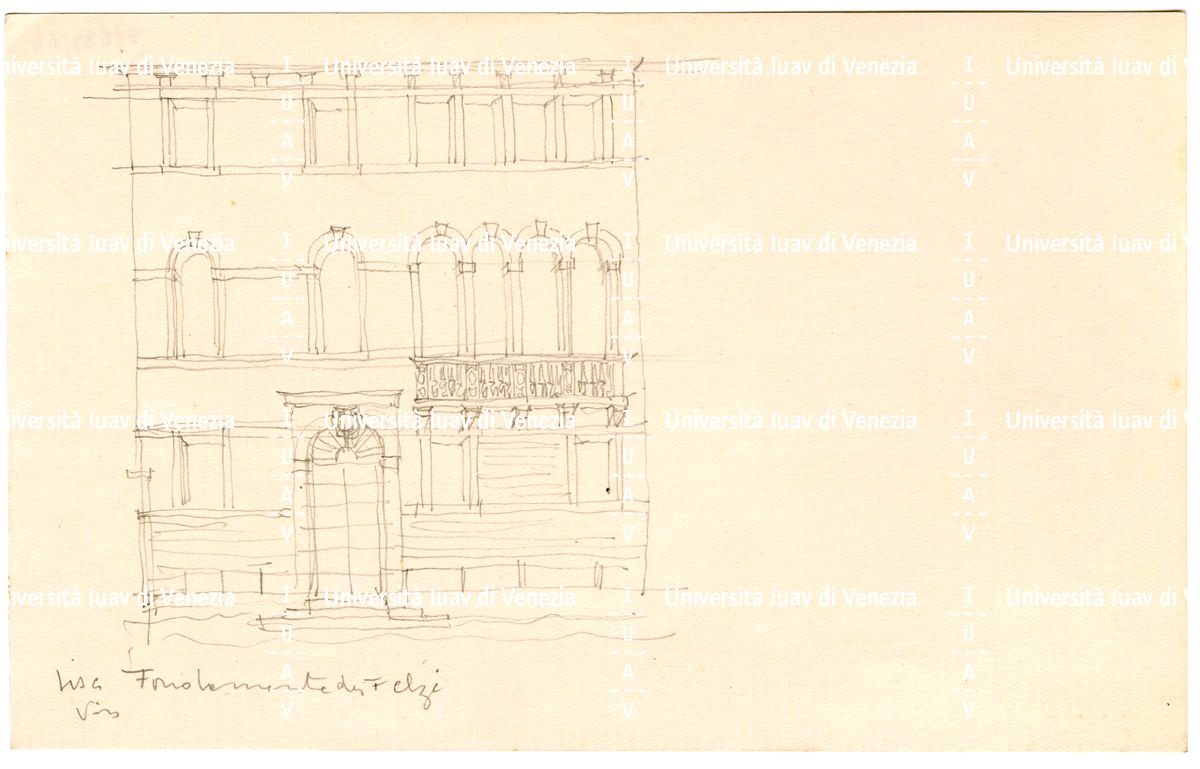 niversità Iuav di Venezia I Università Iuav di Venezia I Università Iuav di Venezia I Università Iuav di V
U U U
A A A
V V V
niversità Iuav di Venezia I Università Iuav di Venezia I Università Iuav di Venezia I Università Iuav di V
U U U
A A A
V V V
niversità Iuav di Venezia I Università Iuav di Venezia I Università Iuav di Venezia I Università Iuav di V
U U U
A A A
V V V
niversità Iuav di Venezia I Università Iuav di Venezia I Università Iuav di Venezia I Università Iuav di V
U U U
A A A
V V V
Fondamenta dei Felzi